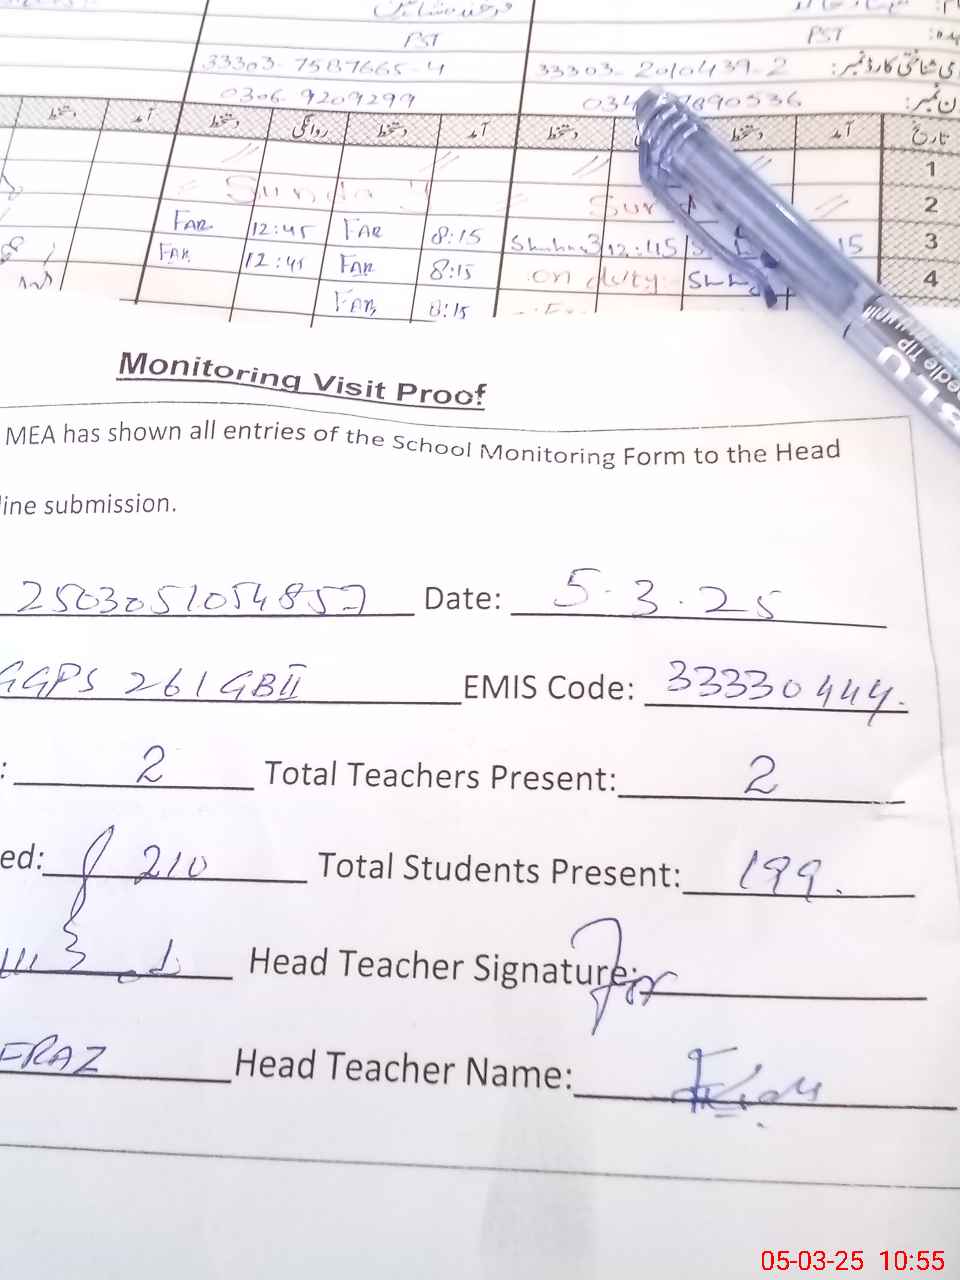 PST PST
33303-7587665-4 33303-2010439-2
0306-9209299
آمد دستخط روانگی دستخط آمد دستخط دستخط آمد تاریخ
1
Sunday 2
FAR 12:45 FAR 8:15 12:45 15 3
FAR 12:45 FAR 8:15 on duty 4
FAR 8:15
Monitoring Visit Proof
MEA has shown all entries of the School Monitoring Form to the Head
line submission.
2503051054857 Date: 5.3.25
GGPS 261GBII EMIS Code: 33330444.
: 2 Total Teachers Present: 2
ed: 210 Total Students Present: 199.
Head Teacher Signature:
FRAZ Head Teacher Name:
05-03-25 10:55